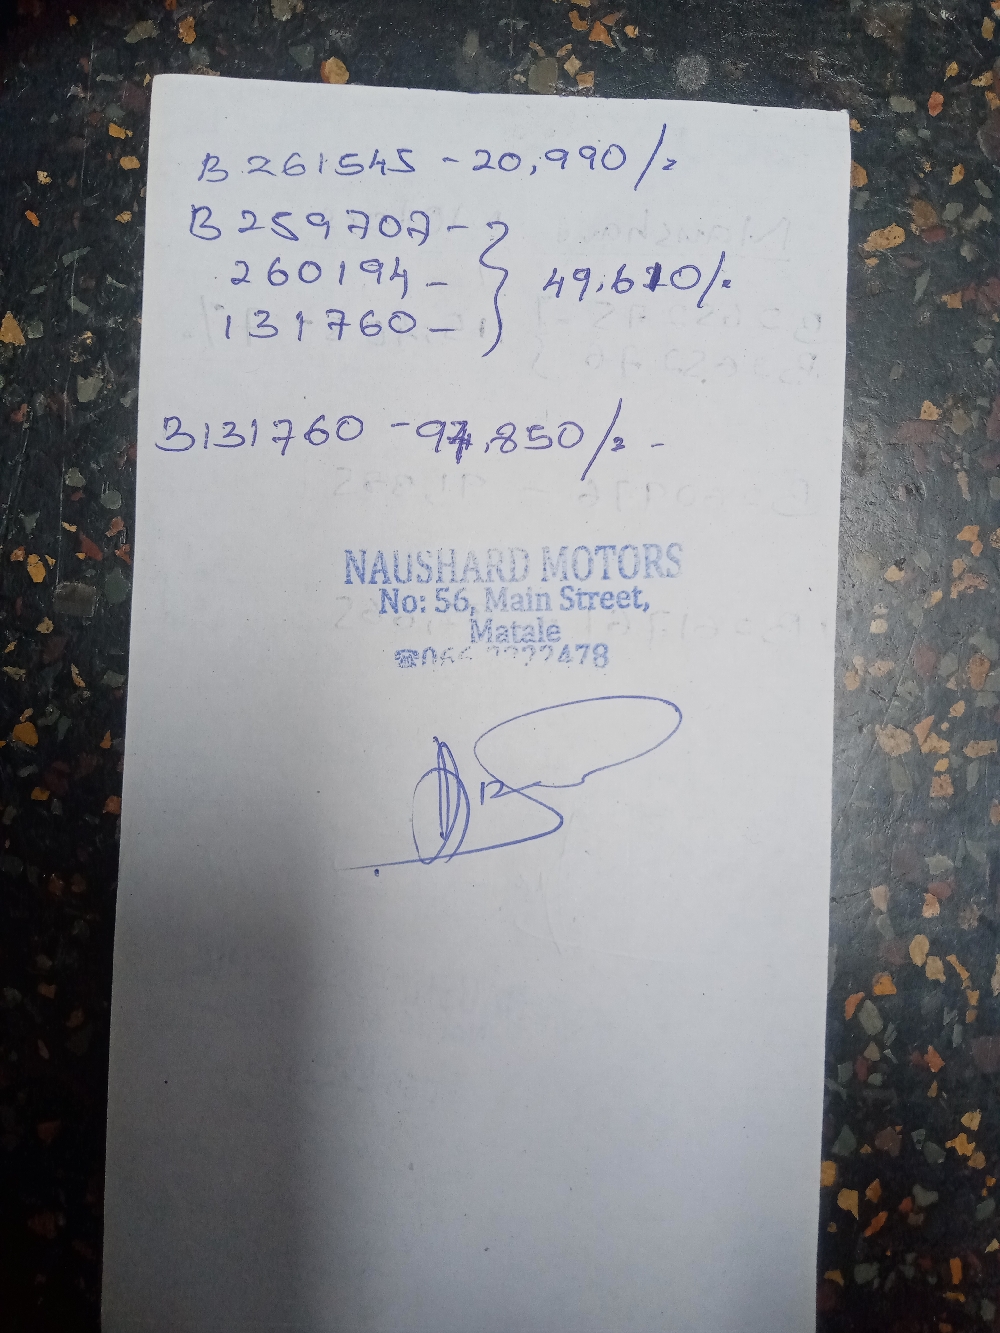 B 261545 - 20,990/=
B 259707 -
260194 - } 49,610/=
131760 -
B131760 - 94,850/= -
NAUSHARD MOTORS
No: 56, Main Street,
Matale
☎066 2222478